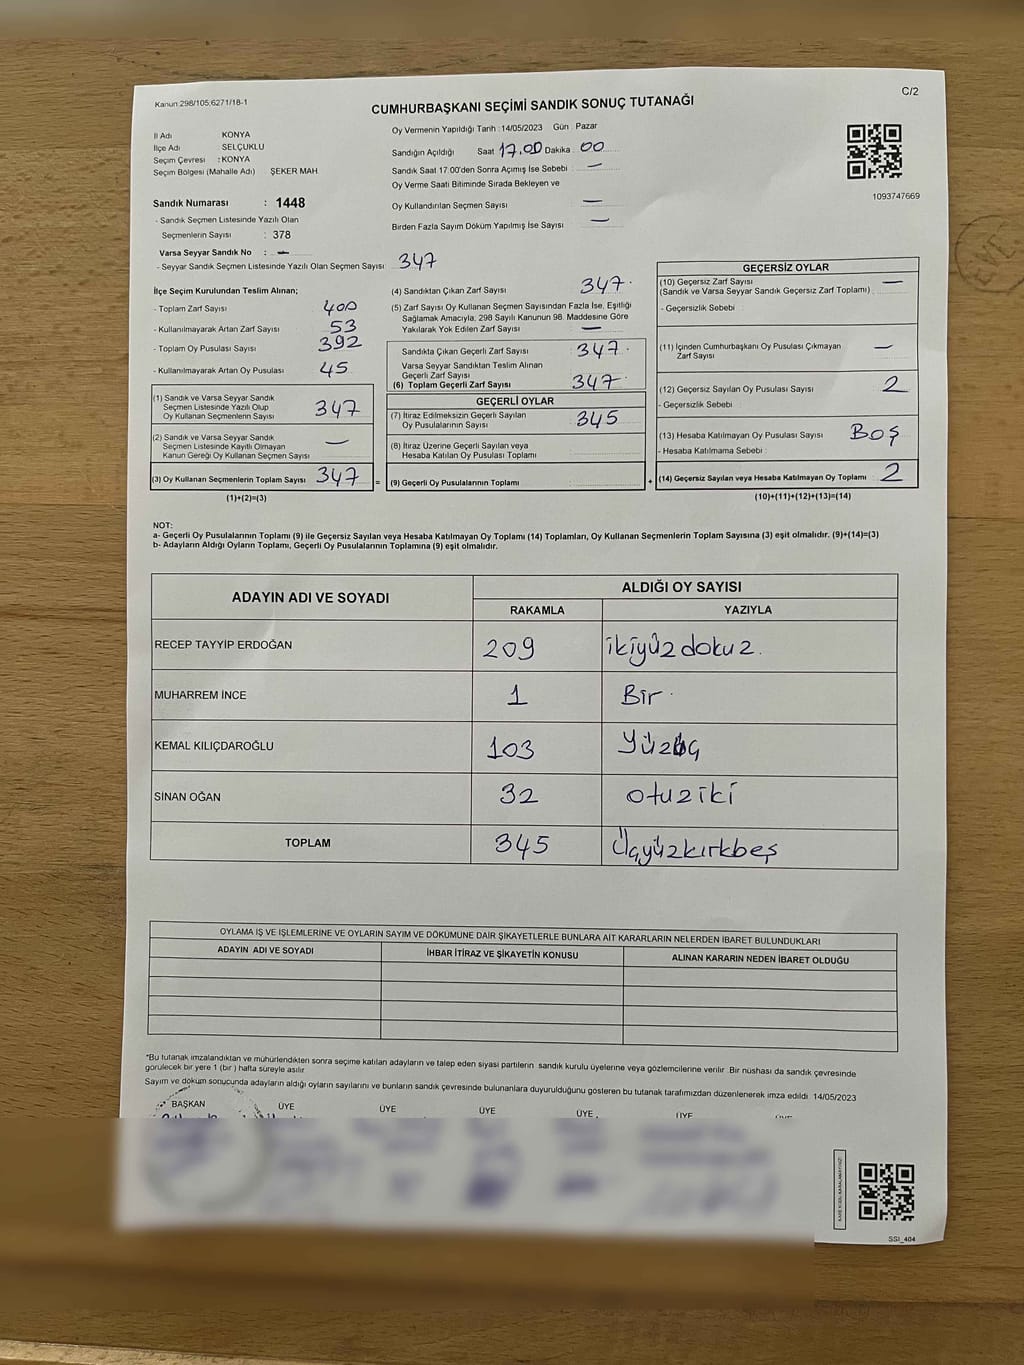 Kanun:298/105;6271/18-1
C/2
CUMHURBAŞKANI SEÇİMİ SANDIK SONUÇ TUTANAĞI
İl Adı KONYA
İlçe Adı SELÇUKLU
Seçim Çevresi : KONYA
Seçim Bölgesi (Mahalle Adı) ŞEKER MAH.
Oy Vermenin Yapıldığı Tarih : 14/05/2023 Gün Pazar
Sandığın Açıldığı Saat 17.00 Dakika 00
Sandık Saat 17:00'den Sonra Açımış İse Sebebi : —
Oy Verme Saati Bitiminde Sırada Bekleyen ve
Oy Kullandırılan Seçmen Sayısı —
Birden Fazla Sayım Döküm Yapılmış İse Sayısı —
1093747669
Sandık Numarası : 1448
- Sandık Seçmen Listesinde Yazılı Olan
Seçmenlerin Sayısı : 378
Varsa Seyyar Sandık No : —
- Seyyar Sandık Seçmen Listesinde Yazılı Olan Seçmen Sayısı 347
İlçe Seçim Kurulundan Teslim Alınan;
- Toplam Zarf Sayısı 400
- Kullanılmayarak Artan Zarf Sayısı 53
- Toplam Oy Pusulası Sayısı 392
- Kullanılmayarak Artan Oy Pusulası 45
(1) Sandık ve Varsa Seyyar Sandık
Seçmen Listesinde Yazılı Olup
Oy Kullanan Seçmenlerin Sayısı 347
(2) Sandık ve Varsa Seyyar Sandık
Seçmen Listesinde Kayıtlı Olmayan
Kanun Gereği Oy Kullanan Seçmen Sayısı —
(3) Oy Kullanan Seçmenlerin Toplam Sayısı 347 =
(1)+(2)=(3)
(4) Sandıktan Çıkan Zarf Sayısı 347
(5) Zarf Sayısı Oy Kullanan Seçmen Sayısından Fazla İse, Eşitliği
Sağlamak Amacıyla, 298 Sayılı Kanunun 98. Maddesine Göre
Yakılarak Yok Edilen Zarf Sayısı —
Sandıkta Çıkan Geçerli Zarf Sayısı 347
Varsa Seyyar Sandıktan Teslim Alınan
Geçerli Zarf Sayısı
(6) Toplam Geçerli Zarf Sayısı 347
GEÇERLİ OYLAR
(7) İtiraz Edilmeksizin Geçerli Sayılan
Oy Pusulalarının Sayısı 345
(8) İtiraz Üzerine Geçerli Sayılan veya
Hesaba Katılan Oy Pusulası Toplamı
(9) Geçerli Oy Pusulalarının Toplamı +
GEÇERSİZ OYLAR
(10) Geçersiz Zarf Sayısı —
(Sandık ve Varsa Seyyar Sandık Geçersiz Zarf Toplamı)
- Geçersizlik Sebebi :
(11) İçinden Cumhurbaşkanı Oy Pusulası Çıkmayan —
Zarf Sayısı
(12) Geçersiz Sayılan Oy Pusulası Sayısı 2
- Geçersizlik Sebebi :
(13) Hesaba Katılmayan Oy Pusulası Sayısı BOŞ
- Hesaba Katılmama Sebebi :
(14) Geçersiz Sayılan veya Hesaba Katılmayan Oy Toplamı 2
(10)+(11)+(12)+(13)=(14)
NOT:
a- Geçerli Oy Pusulalarının Toplamı (9) ile Geçersiz Sayılan veya Hesaba Katılmayan Oy Toplamı (14) Toplamları, Oy Kullanan Seçmenlerin Toplam Sayısına (3) eşit olmalıdır. (9)+(14)=(3)
b- Adayların Aldığı Oyların Toplamı, Geçerli Oy Pusulalarının Toplamına (9) eşit olmalıdır.
ADAYIN ADI VE SOYADI ALDIĞI OY SAYISI
RAKAMLA YAZIYLA
RECEP TAYYİP ERDOĞAN 209 ikiyüzdokuz.
MUHARREM İNCE 1 Bir
KEMAL KILIÇDAROĞLU 103 Yüzüç
SİNAN OĞAN 32 otuziki
TOPLAM 345 Üçyüzkırkbeş
OYLAMA İŞ VE İŞLEMLERİNE VE OYLARIN SAYIM VE DÖKÜMÜNE DAİR ŞİKAYETLERLE BUNLARA AİT KARARLARIN NELERDEN İBARET BULUNDUKLARI
ADAYIN ADI VE SOYADI İHBAR İTİRAZ VE ŞİKAYETİN KONUSU ALINAN KARARIN NEDEN İBARET OLDUĞU
*Bu tutanak imzalandıktan ve mühürlendikten sonra seçime katılan adayların ve talep eden siyasi partilerin sandık kurulu üyelerine veya gözlemcilerine verilir. Bir nüshası da sandık çevresinde
görülecek bir yere 1 (bir) hafta süreyle asılır.
Sayım ve döküm sonucunda adayların aldığı oyların sayılarını ve bunların sandık çevresinde bulunanlara duyurulduğunu gösteren bu tutanak tarafımızdan düzenlenerek imza edildi. 14/05/2023
BAŞKAN ÜYE ÜYE ÜYE ÜYE ÜYE
SSI_404